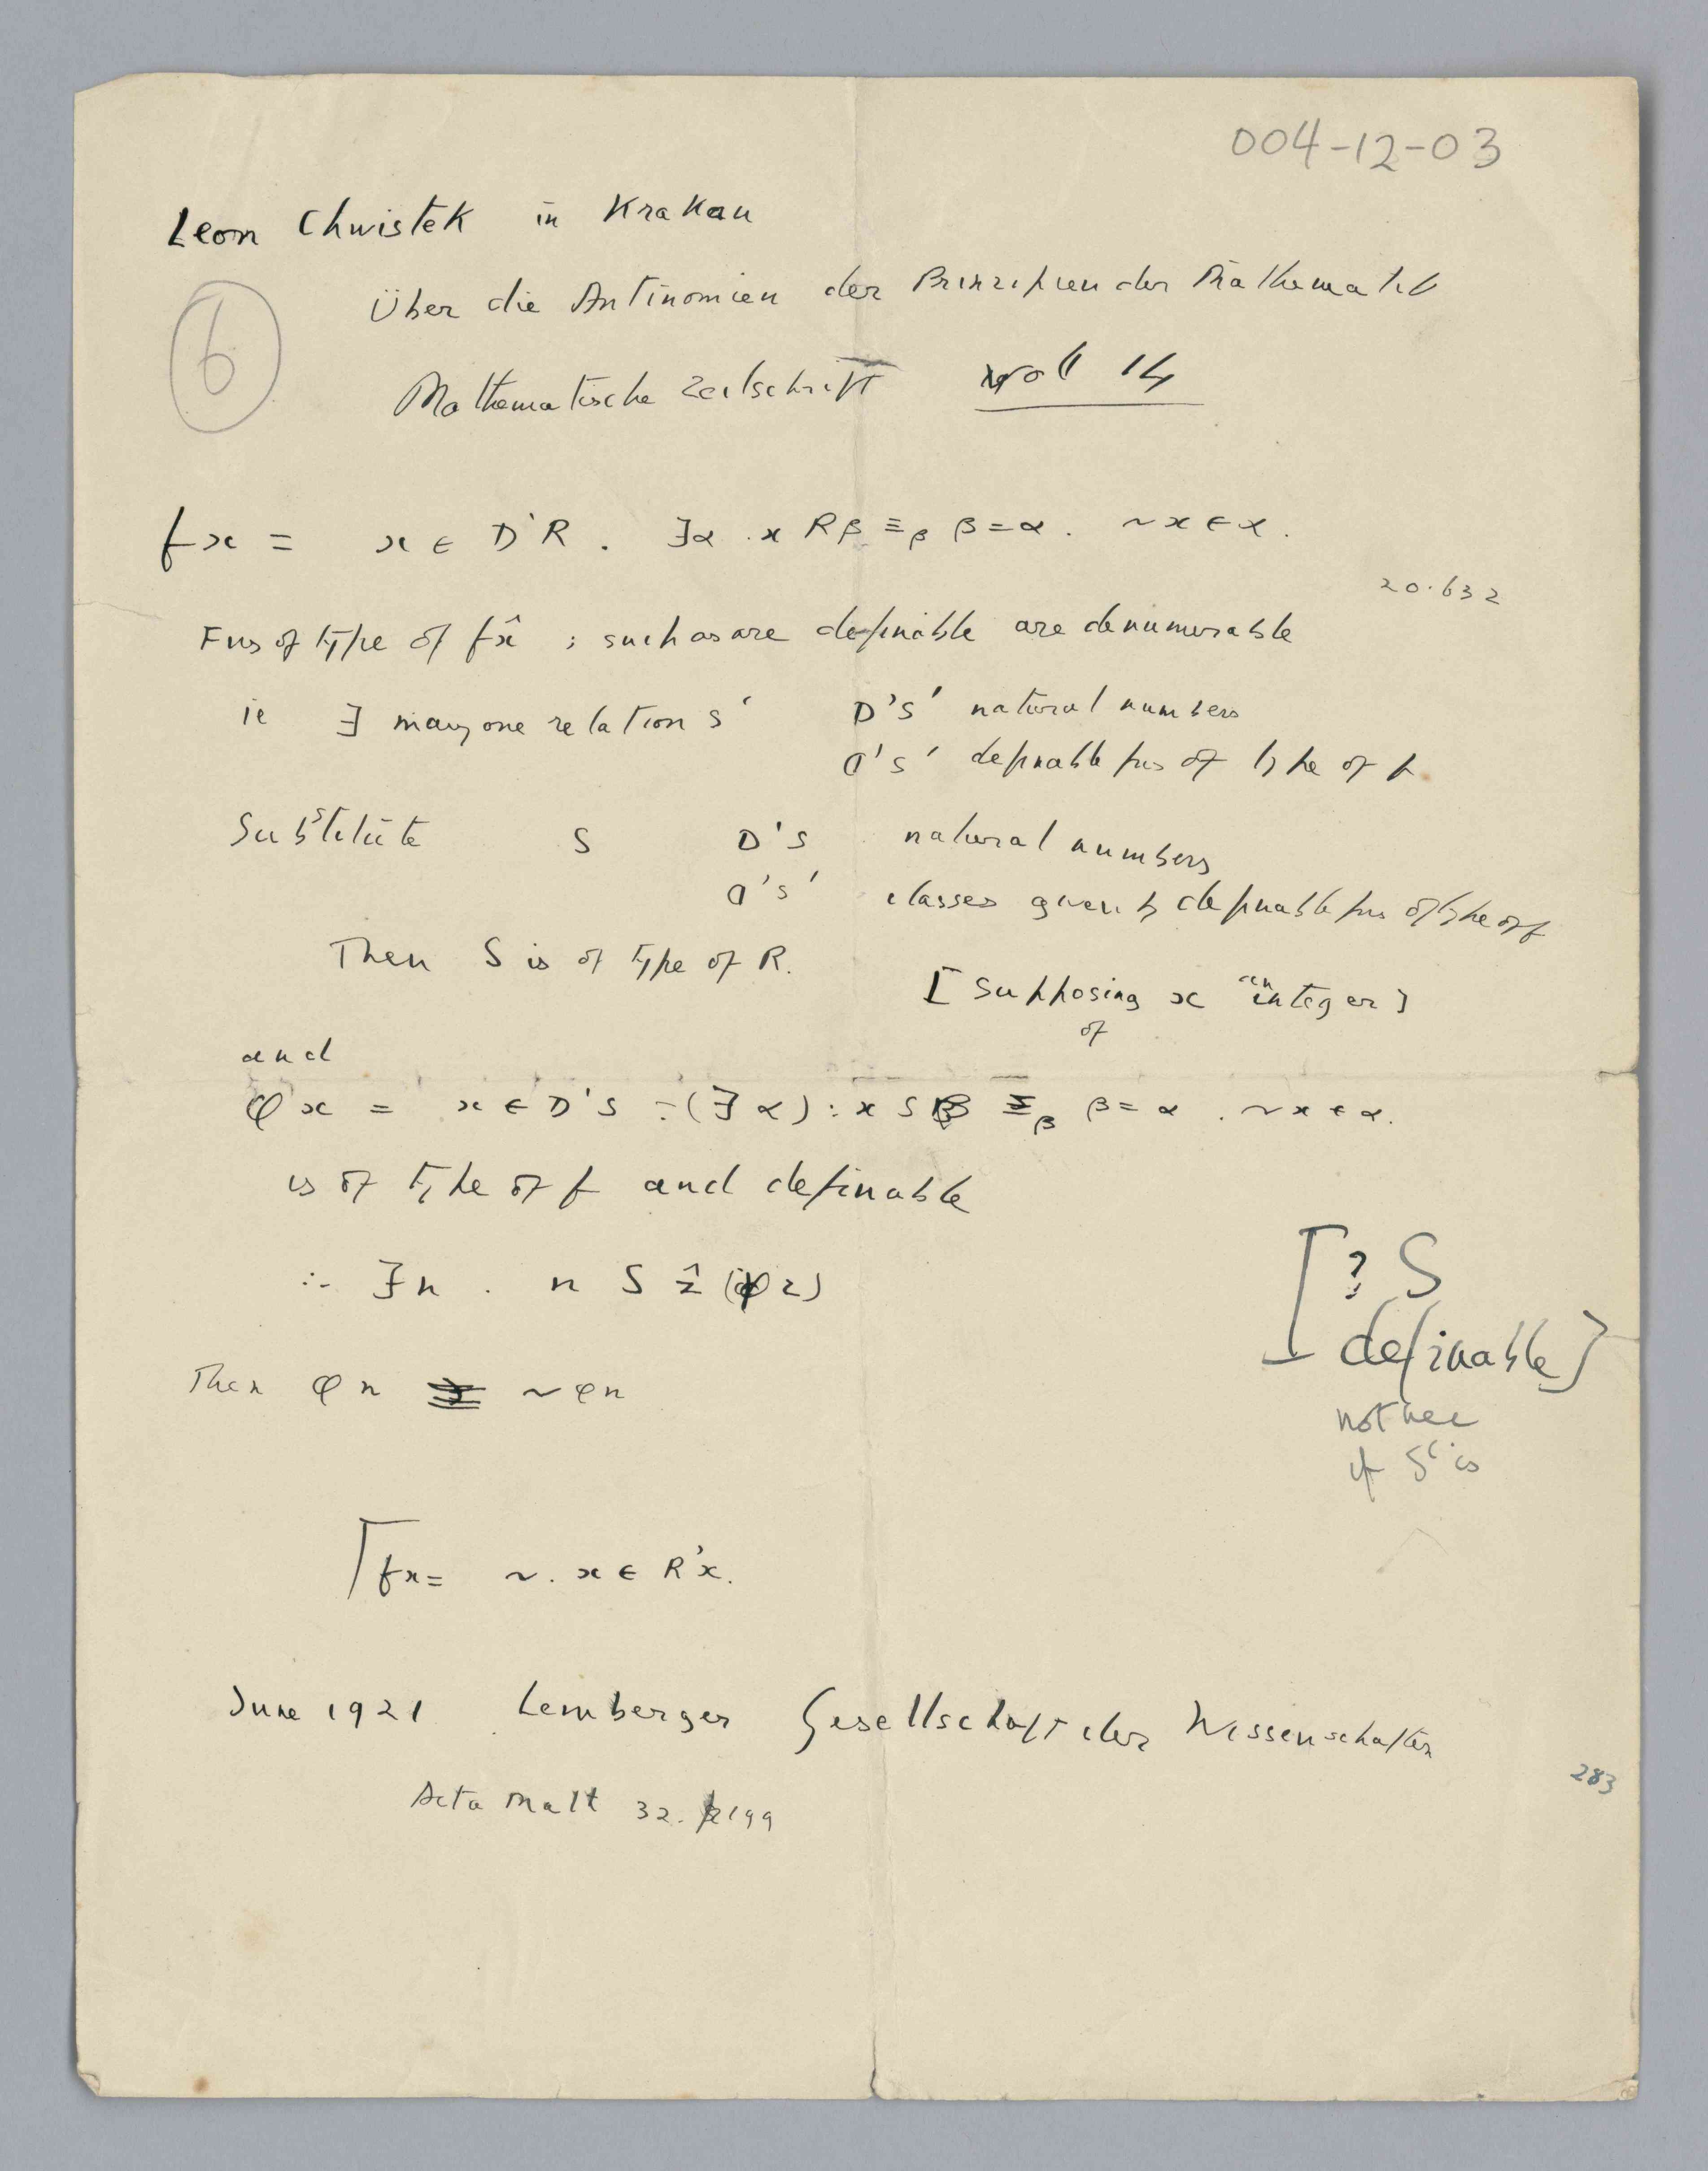 004-12-03
Leon Chwistek in Krakau
Über die Antinomien der Prinzipien der Mathematik
6
Mathematische Zeitschrift vol 14
fx = x ∈ D'R . ∃α . x Rβ ≡β β = α . ~x ∈ α .
20.632
Fns of type of fx̂ ; such as are definable are denumerable
ie ∃ many one relation S' D'S' natural numbers
ᗡ'S' definable fns of type of f
Substitute S D'S natural numbers
ᗡ'S' classes given by definable fns of type of f
Then S is of type of R.
[Supposing x an integer]
of
and
φx = x ∈ D'S :(∃α): x S β ≡β β = α . ~x ∈ α.
is of type of f and definable
∴ ∃n . n S ẑ(φz)
[? S
definable]
Then φn ≡ ~φn
not nec
if S' is
fx = ~. x ∈ R'x.
June 1921 Lemberger Gesellschaft der Wissenschaften
283
Acta Matt 32. p199